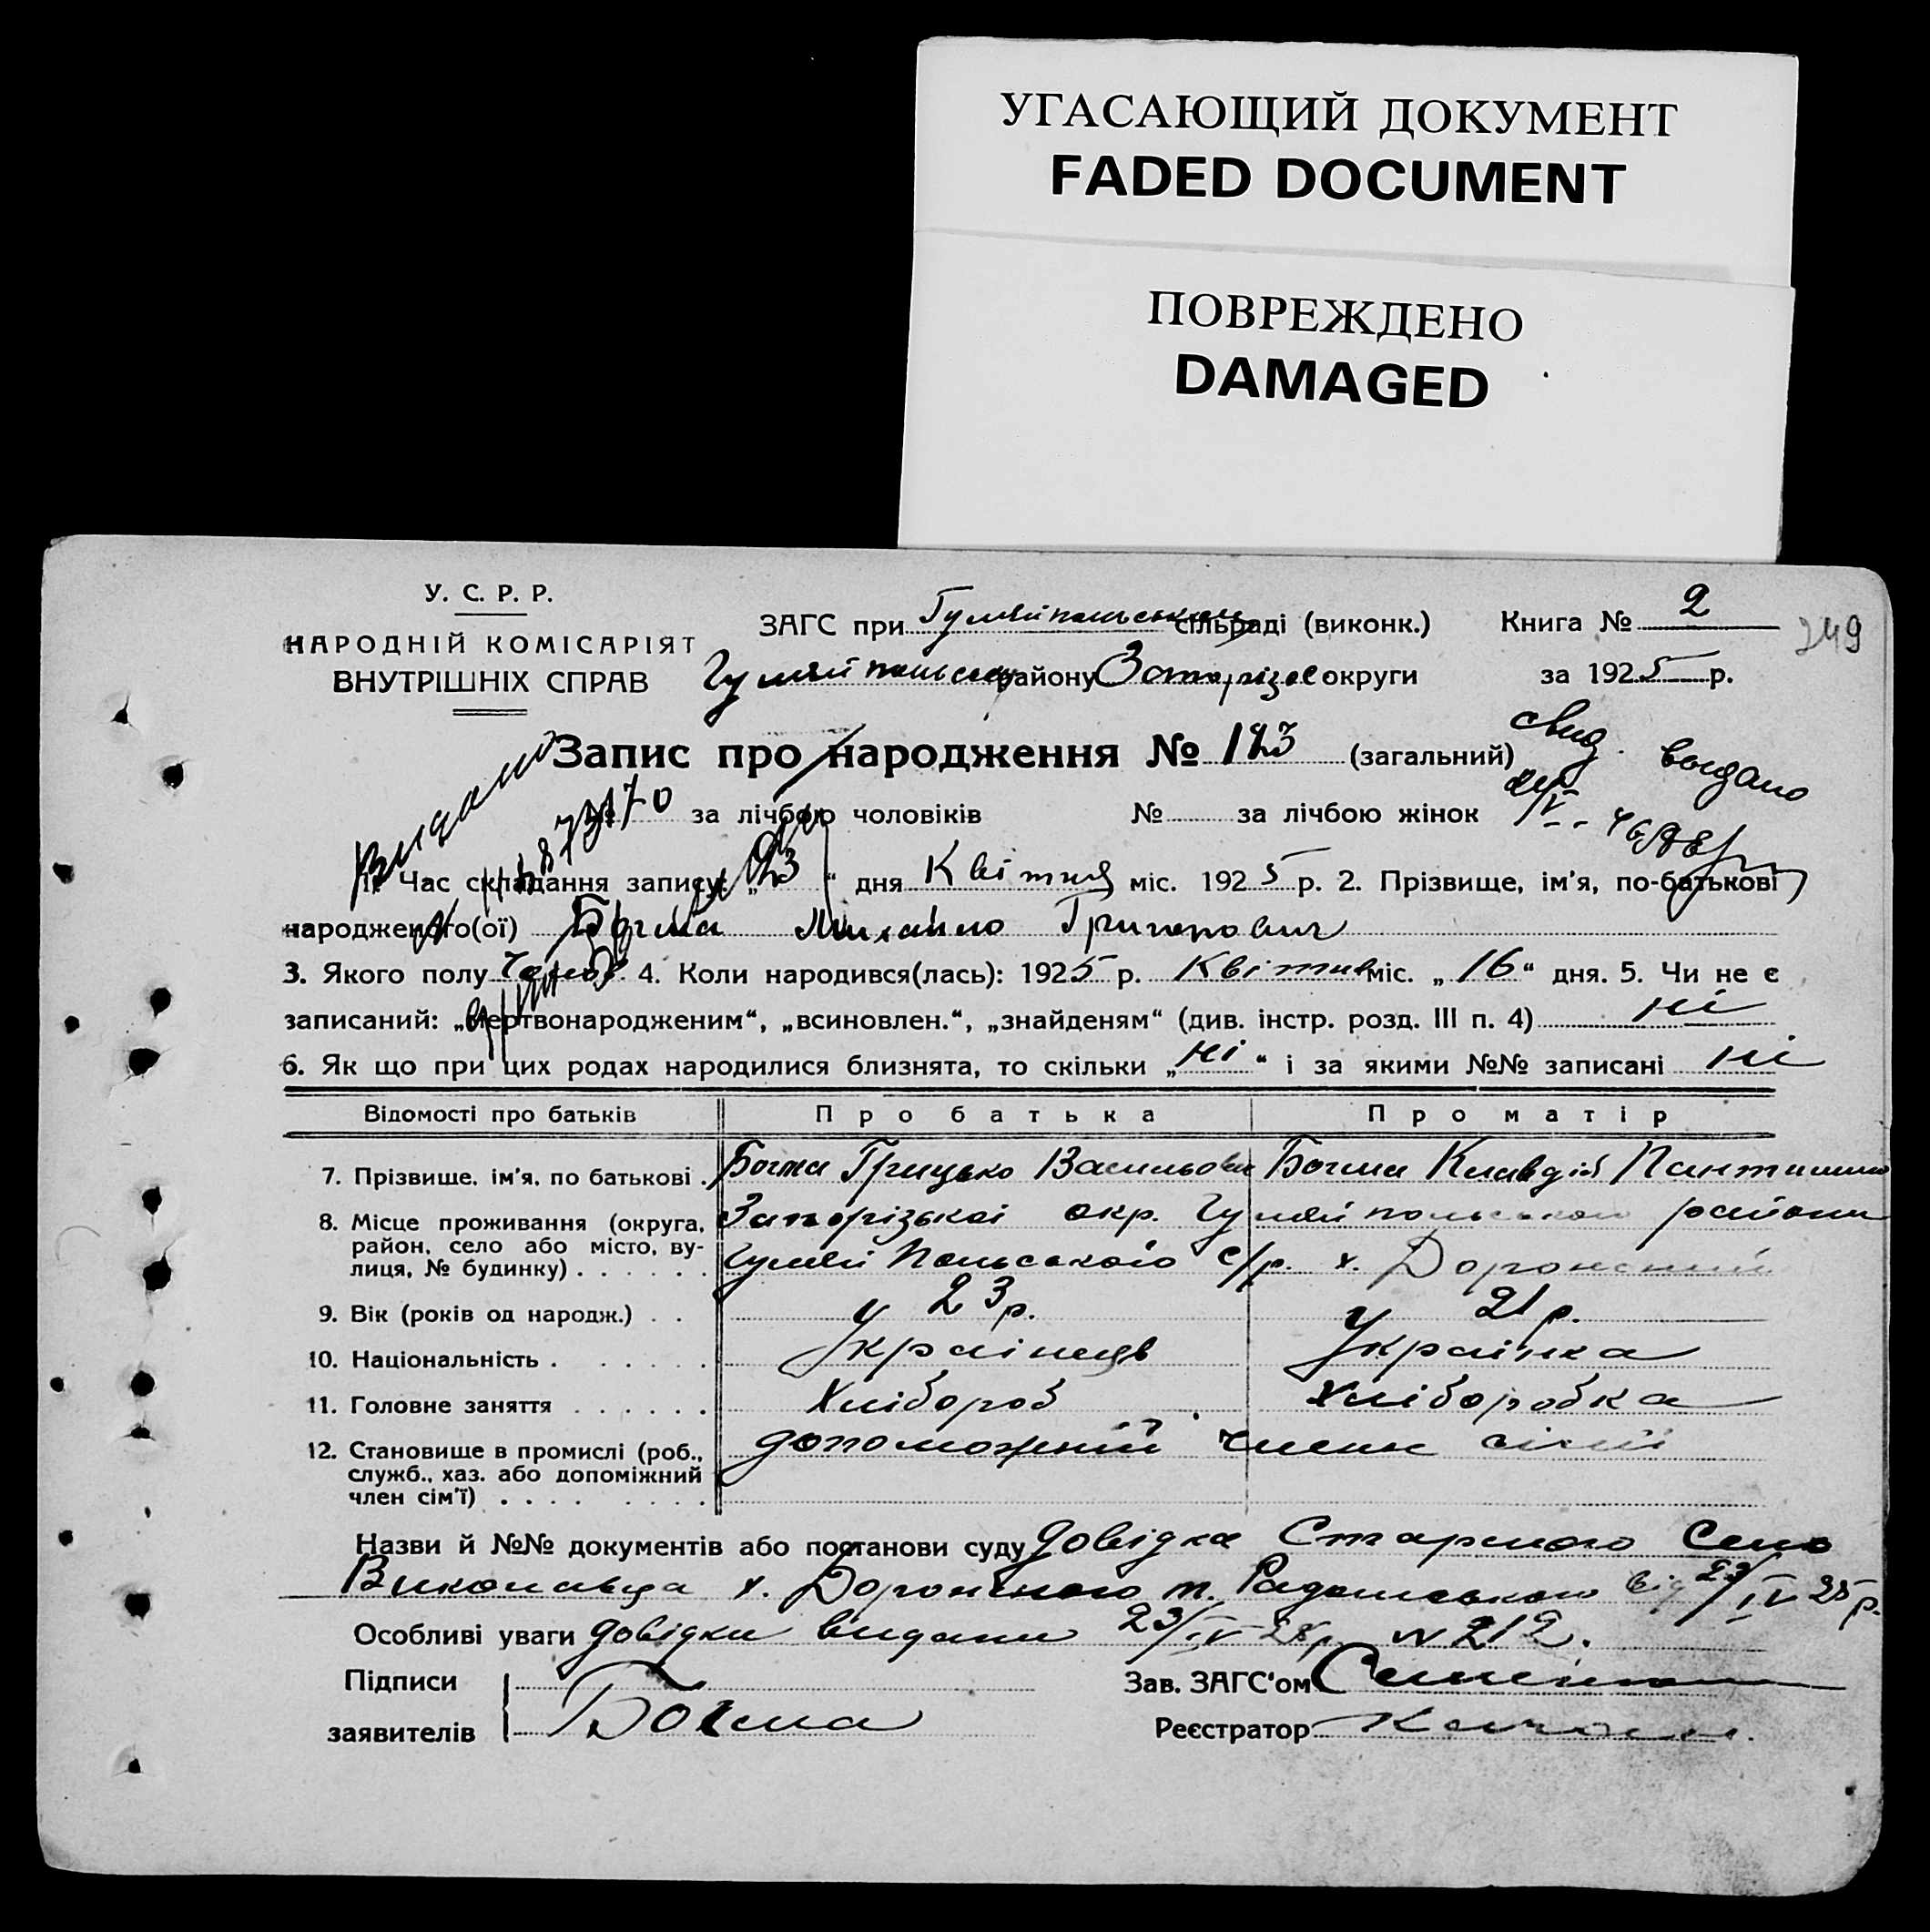 УГАСАЮЩИЙ ДОКУМЕНТ
FADED DOCUMENT
ПОВРЕЖДЕНО
DAMAGED
У. С. Р. Р.
НАРОДНІЙ КОМІСАРІЯТ
ВНУТРІШНІХ СПРАВ
ЗАГС при Гуляйпольськ. сільраді (виконк.)
Гуляйпольськ. району Запорізьс округи
Книга № 2
249
за 1925 р.
Запис про народження № 123 (загальний)
свид. выдано
Видано
70 за лічбою чоловіків № за лічбою жінок
1. Час складання запису: „23“ дня Квітня міс. 1925 р. 2. Прізвище, ім'я, по-батькові
народженого(ої) Богма Михайло Грицькович
3. Якого полу Чолов. 4. Коли народився(лась): 1925 р. Квітня міс. „16“ дня. 5. Чи не є
записаний: „мертвонародженим“, „всиновлен.“, „знайденям“ (див. інстр. розд. III п. 4) ні
6. Як що при цих родах народилися близнята, то скільки „ні“ і за якими №№ записані ні
Відомості про батьків Про батька Про матір
7. Прізвище, ім'я, по батькові . Богма Грицько Васильов Богма Клавдія
8. Місце проживання (округа, район, село або місто, вулиця, № будинку) Запорізькоі окр. Гуляйпольського району
Гуляйпольського с/р. х.
9. Вік (років од народж.) 23 р. 21 р.
10. Національність . Украінець Украінка
11. Головне заняття Хлібороб Хліборобка
12. Становище в промислі (роб., служб., хаз. або допоміжний член сім'ї) допоможній член сімії
Назви й №№ документів або постанови суду довідка Старшого Село
Виконавця х. т. від 23/IV 25 р.
Особливі уваги довідки видани 23/IV 25 р. № 212.
Підписи
заявителів Богма
Зав. ЗАГС'ом
Реєстратор